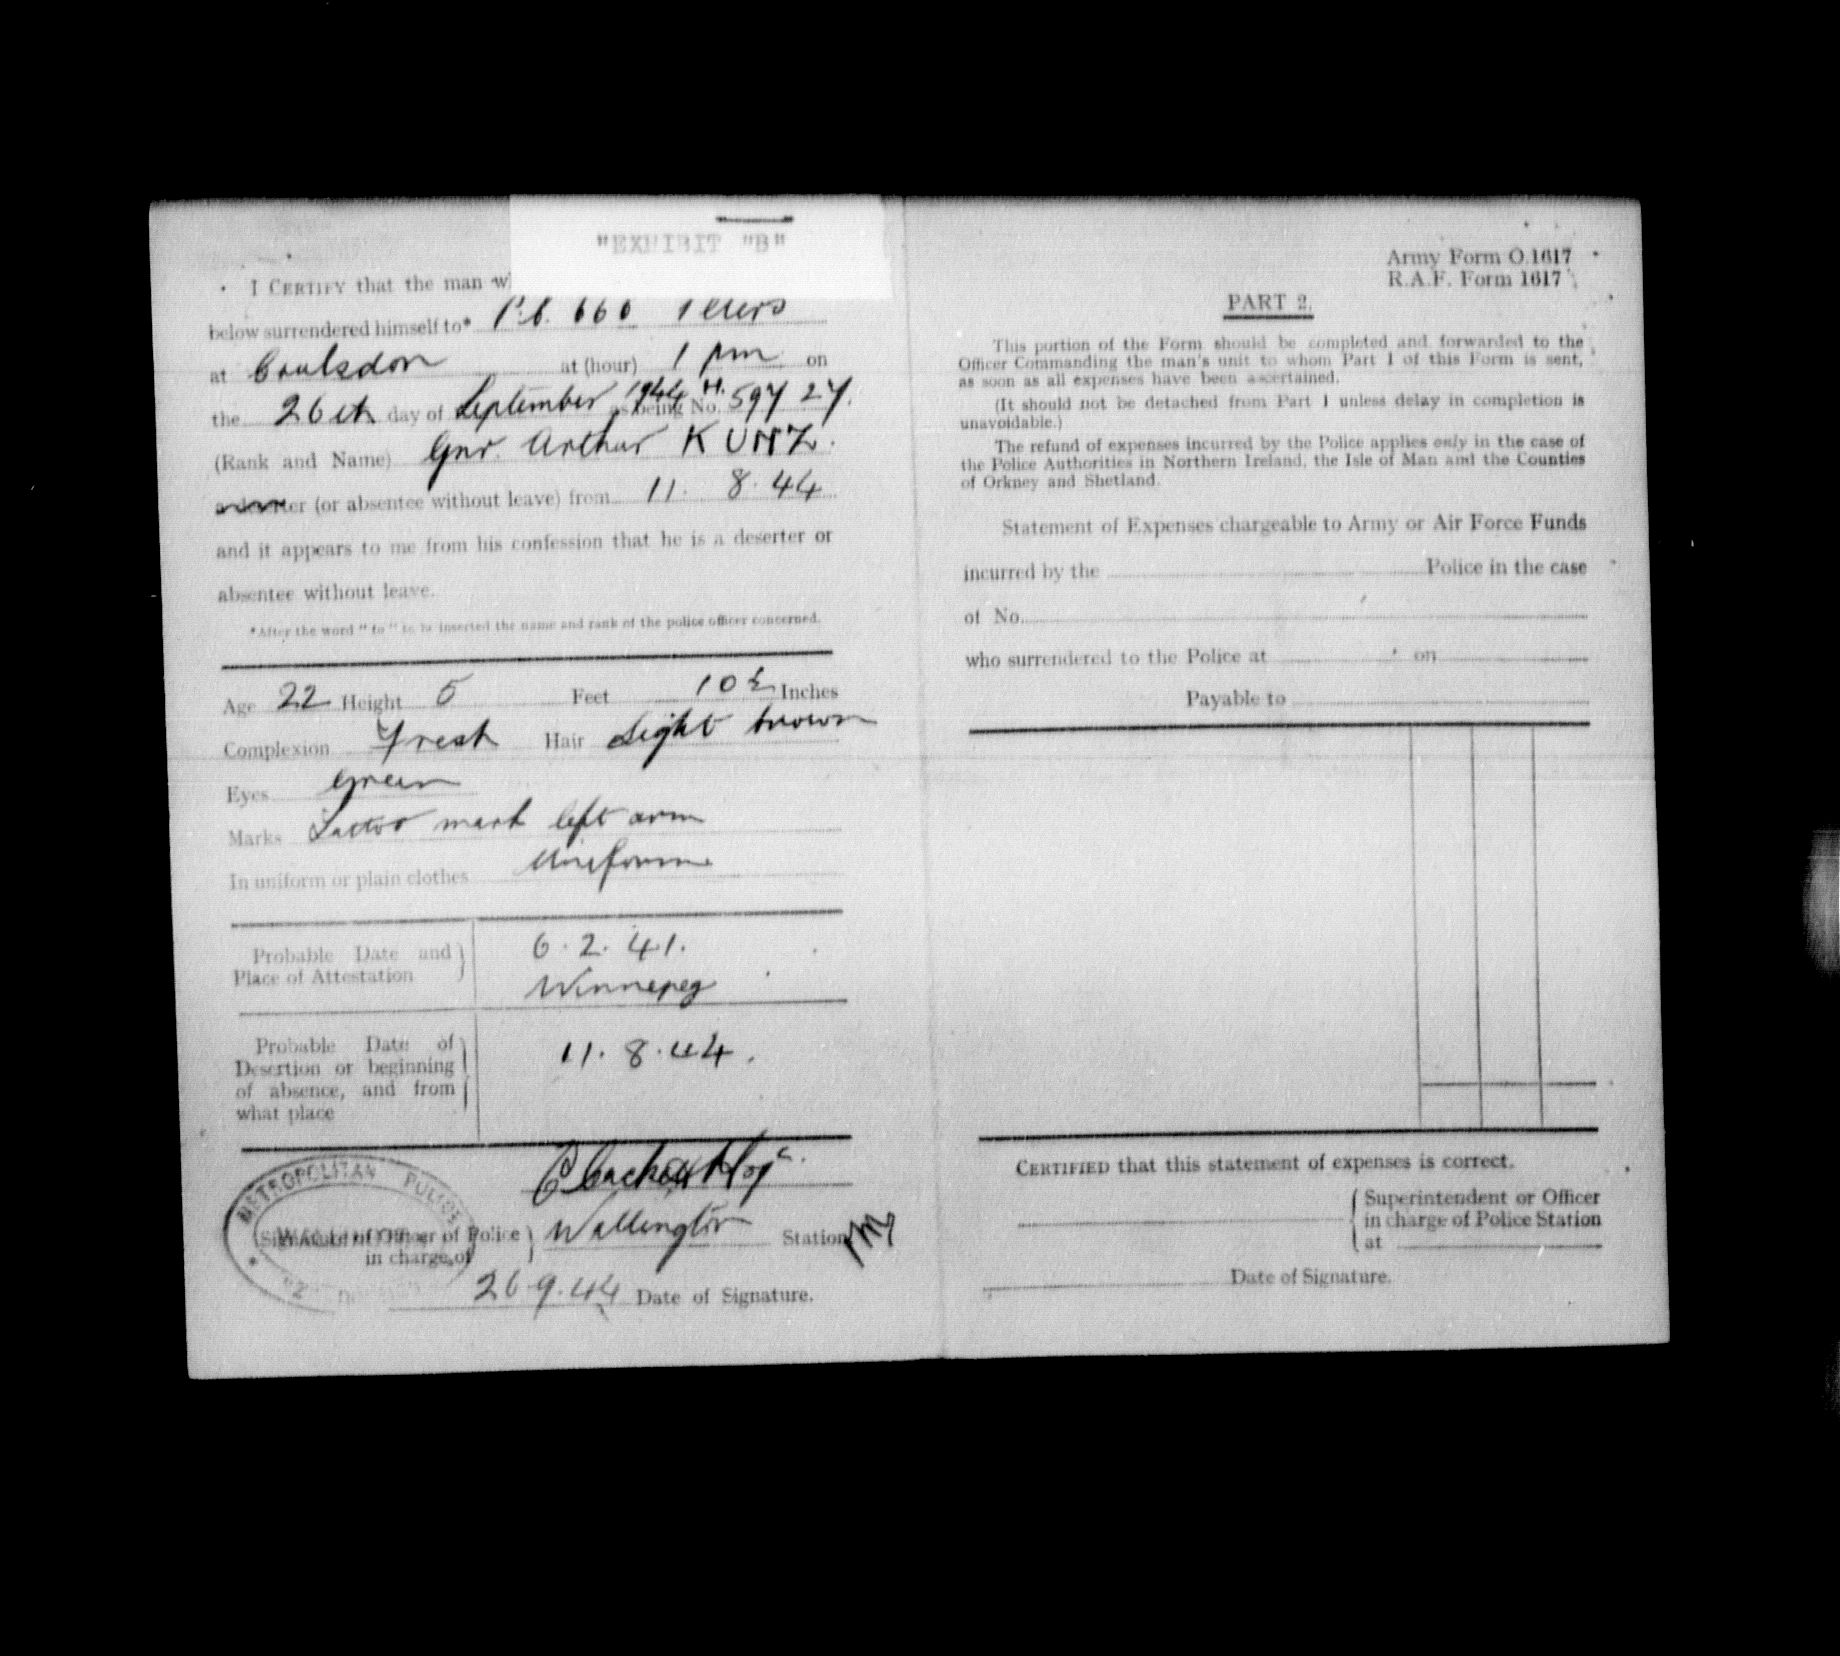 "EXHIBIT "B"
I CERTIFY that the man w
below surrendered himself to* P.C. 660
at Coulsdon at (hour) 1 pm on
the 26th day of September 1944 as being No. H. 59727.
(Rank and Name) Gnr. Arthur KUNZ.
(or absentee without leave) from 11. 8. 44
and it appears to me from his confession that he is a deserter or
absentee without leave.
*After the word "to" to be inserted the name and rank of the police officer concerned.
Age 22 Height 5 Feet 10½ Inches
Complexion Fresh Hair Light brown
Eyes Green
Marks Tattoo mark left arm
In uniform or plain clothes Uniform
Probable Date and
Place of Attestation
6. 2. 41.
Winnepeg
Probable Date of
Desertion or beginning
of absence, and from
what place
11. 8. 44.
METROPOLITAN POLICE
Signature of Officer of Police
in charge of
Wallington Station
26.9.44 Date of Signature.
Army Form O.1617
R.A.F. Form 1617
PART 2.
This portion of the Form should be completed and forwarded to the
Officer Commanding the man's unit to whom Part 1 of this Form is sent,
as soon as all expenses have been ascertained.
(It should not be detached from Part 1 unless delay in completion is
unavoidable.)
The refund of expenses incurred by the Police applies only in the case of
the Police Authorities in Northern Ireland, the Isle of Man and the Counties
of Orkney and Shetland.
Statement of Expenses chargeable to Army or Air Force Funds
incurred by the Police in the case
of No.
who surrendered to the Police at on
Payable to
CERTIFIED that this statement of expenses is correct.
Superintendent or Officer
in charge of Police Station
at
Date of Signature.